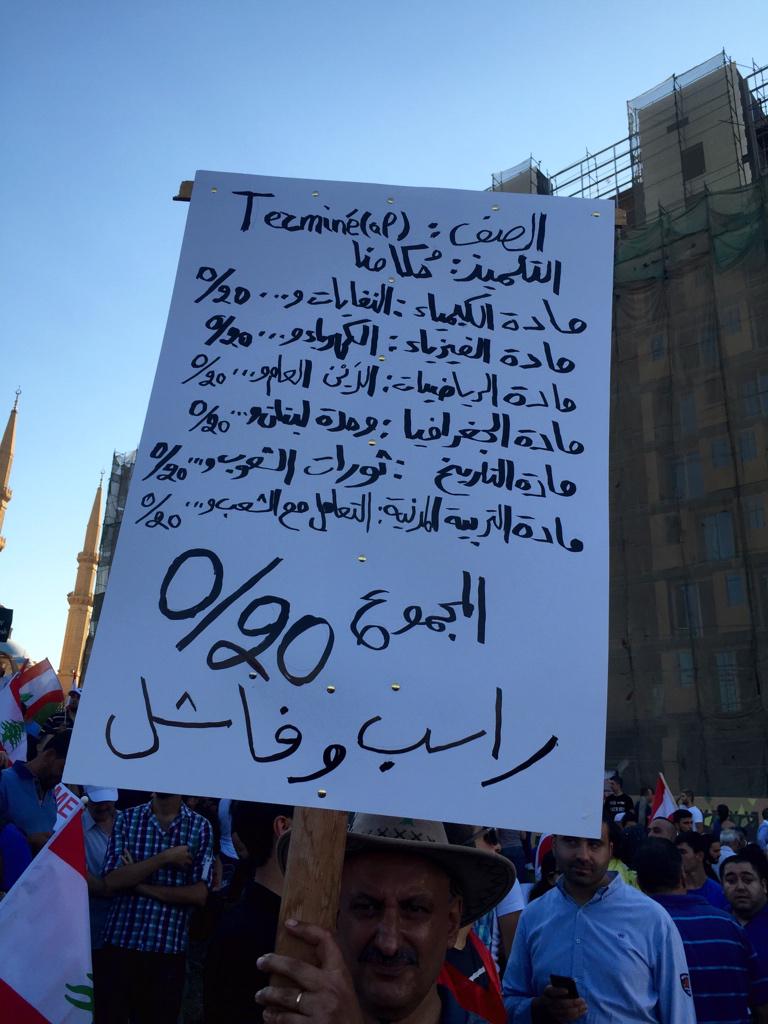 الصف: Terminé(إم)
التلميذ: حُكامنا
مادة الكيمياء: النفايات و... 0/20
مادة الفيزياء: الكهرباء و... 0/20
مادة الرياضيات: الدَيْن العام و... 0/20
مادة الجغرافيا: وحدة لبنان و... 0/20
مادة التاريخ: ثورات الشعوب و... 0/20
مادة التربية المدنية: التعامل مع الشعب و... 0/20
المجموع 0/20
راسب وفاشل
ME